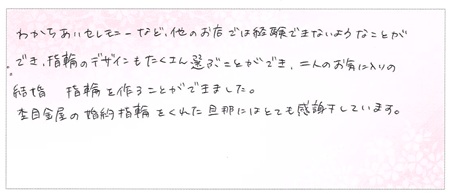 わかちあいセレモニーなど、他のお店では経験できないようなことが
でき、指輪のデザインもたくさん選ぶことができ、二人のお気に入りの
結婚 指輪を作ることができました。
杢目金屋の婚約指輪をくれた旦那にはとても感謝しています。